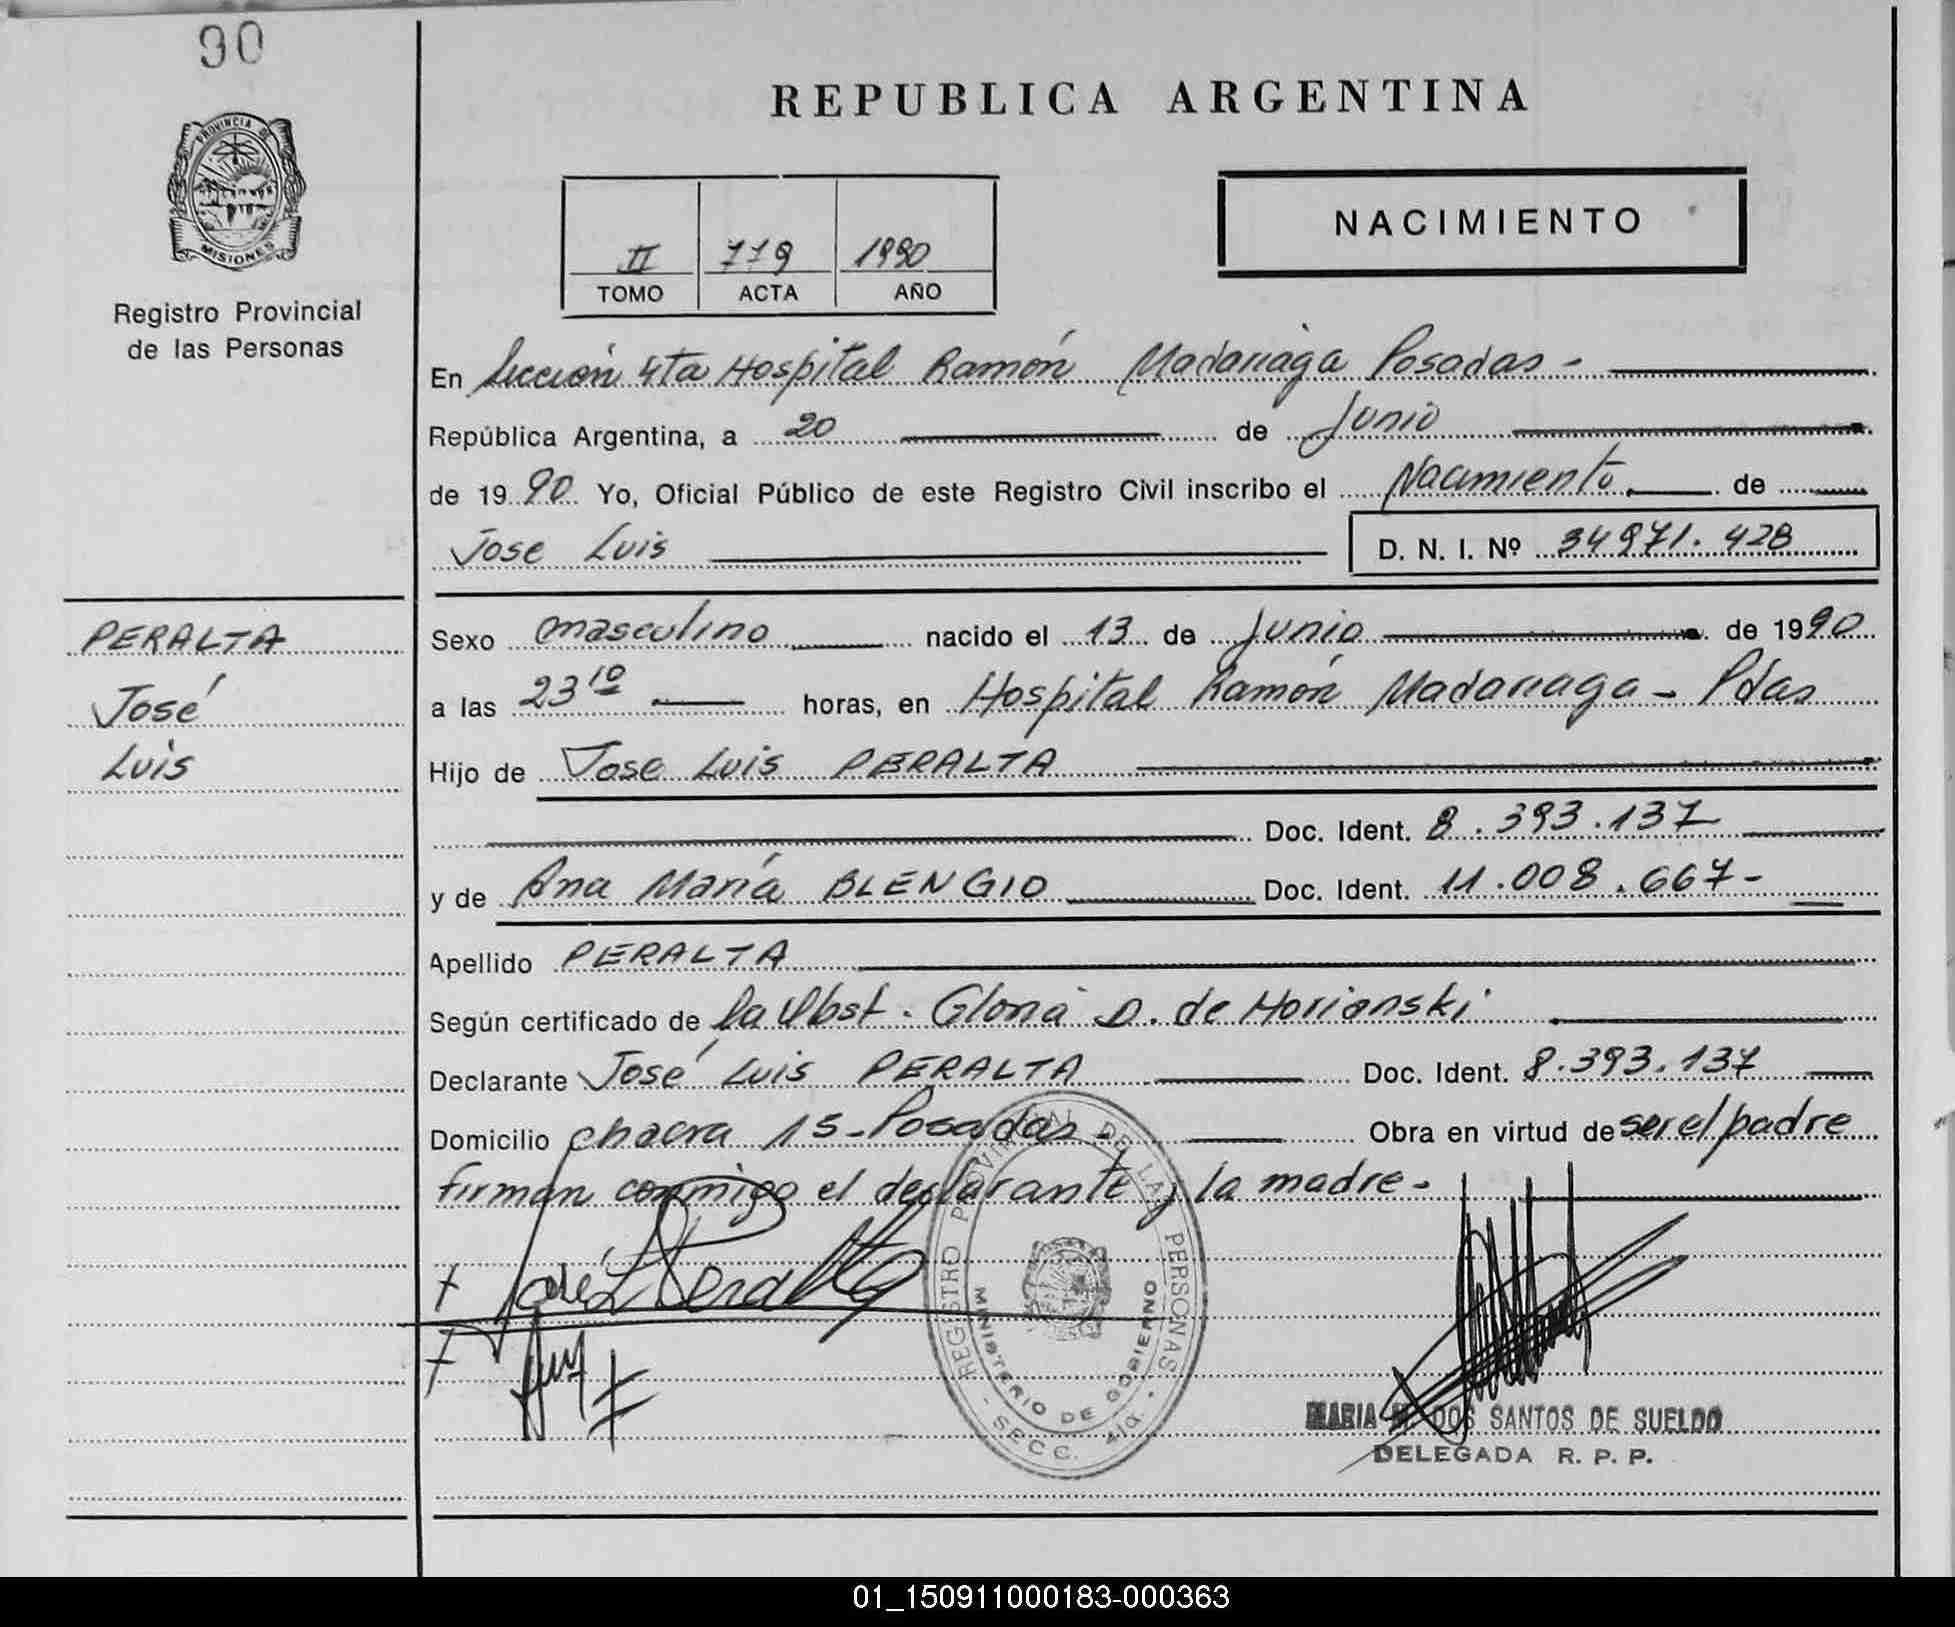 90
REPUBLICA ARGENTINA
PROVINCIA DE MISIONES
Registro Provincial
de las Personas
II 779 1990
TOMO ACTA AÑO
NACIMIENTO
En Sección 4ta Hospital Ramón Madariaga Posadas -
República Argentina, a 20 de Junio
de 1990 Yo, Oficial Público de este Registro Civil inscribo el Nacimiento de
Jose Luis D. N. I. Nº 34971.428
PERALTA
José
Luis
Sexo masculino nacido el 13 de Junio de 1990
a las 23 10 horas, en Hospital Ramón Madariaga - Pdas
Hijo de Jose Luis PERALTA
Doc. Ident. 8.393.137
y de Ana María BLENGIO Doc. Ident. 11.008.667-
Apellido PERALTA
Según certificado de la Obst. Gloria D. de Morianski
Declarante José Luis PERALTA Doc. Ident. 8.393.137
Domicilio chacra 15 - Posadas - Obra en virtud de ser el padre
firman conmigo el declarante y la madre -
José L Peralta
REGISTRO PROVINCIAL DE LAS PERSONAS
MINISTERIO DE GOBIERNO
- SECC. 4ta. -
MARIA DOS SANTOS DE SUELDO
DELEGADA R. P. P.
01_150911000183-000363